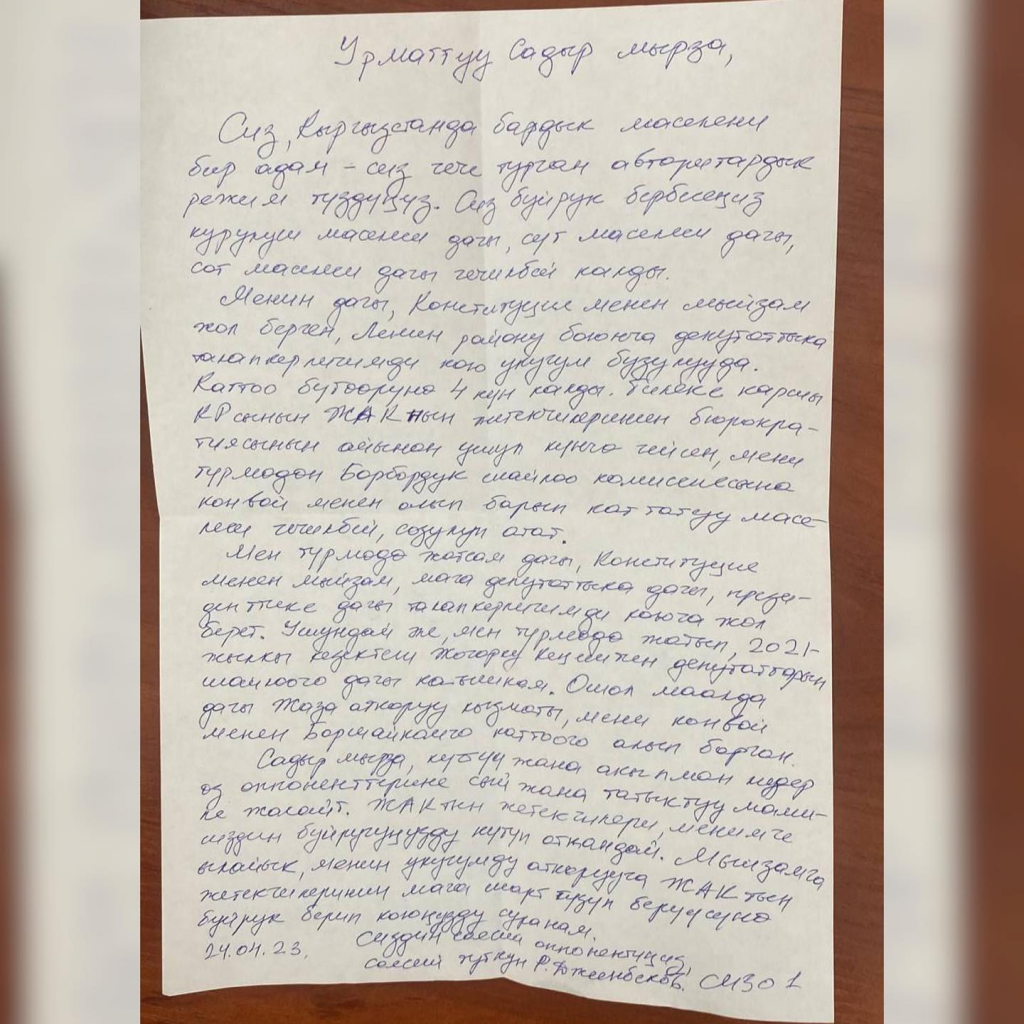 Урматтуу Садыр мырза,
Сиз, Кыргызстанда бардык маселени
бир адам – сиз чече турган авторитардык
режим түздүңүз. Сиз буйрук бербесеңиз
курулуш маселеси дагы, сүт маселеси дагы,
сот маселеси дагы чечилбей калды.
Менин дагы, Конституция менен мыйзам
жол берген, Ленин району боюнча депутаттыка
талапкерлигимди кою укугум бузулууда.
Каттоо бүтөөрүнө 4 күн калды. Тилеке каршы
КРсынын ЖАКнын жетекчилеринен бюрокра-
тиясынын айынан ушул күнгө чейин, мени
түрмөдөн Борбордук шайлоо комиссиясына
конвой менен алып барып каттатуу масе-
леси чечилбей, созулуп атат.
Мен түрмөдө жатсам дагы, Конституция
менен мыйзам, мага депутаттыка дагы, прези-
денттике дагы талапкерлигимди коюга жол
берет. Ушундай эле, мен түрмөдө жатып, 2021-
жылкы кезектеги Жогорку Кеңешинен депутаттарын
шайлоого дагы катышкам. Ошол маалда
дагы Жаза аткаруу кызматы, мени конвой
менен Боршайкомго каттоого алып барган.
Садыр мырза, күчтүү жана акылман лидер
өз оппоненттерине сый жана татыктуу мами-
ле жасайт. ЖАКтин жетекчилери, менимче
сиздин буйругуңузду күтүп аткандай. Мыйзамга
ылайык, менин укугумду аткарууга ЖАКтын
жетекчилеринин мага шарт түзүп берүүсүнө
буйрук берип коюңузду суранам.
24.04.23. Сиздин саясий оппонентиңиз,
саясий туткун Р. Джеенбеков. СИЗО 1